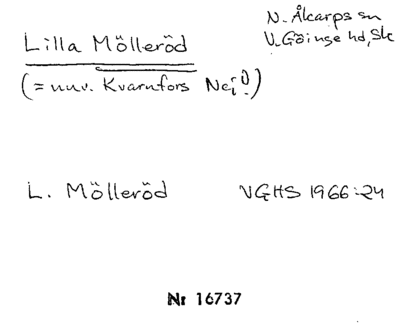 Lilla Mölleröd
N. Åkarps sn
V. Göinge hd, Sk
(= nuv. Kvarnfors Nej!)
L. Mölleröd VGHS 1966:24
Nr 16737